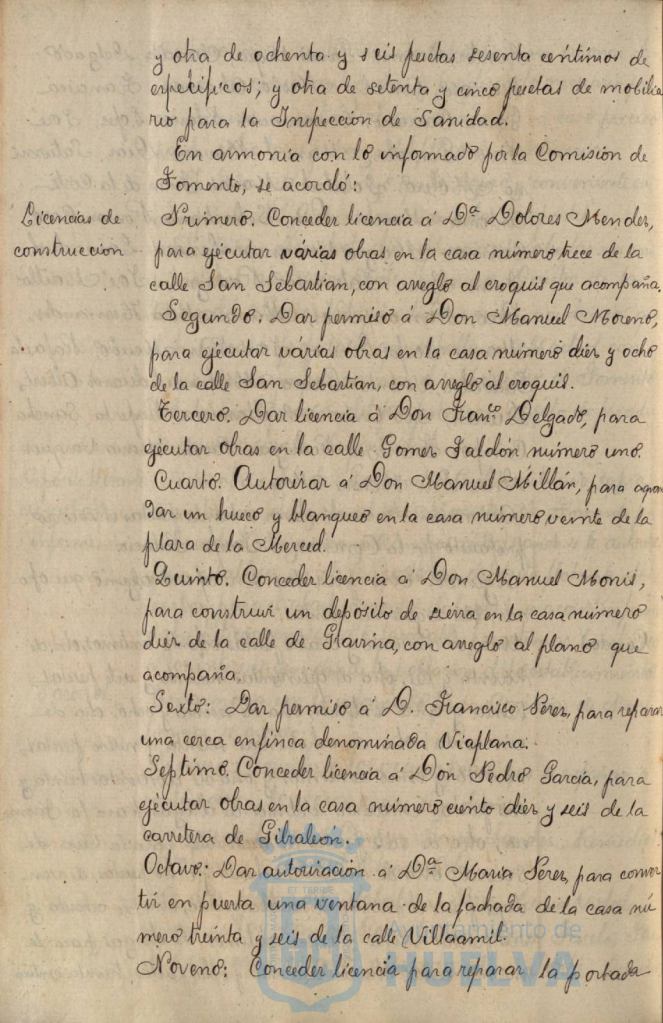 y otra de ochenta y seis pesetas sesenta centimos de
especificos; y otra de setenta y cinco pesetas de mobilia
rio para la Inspección de Sanidad.
En armonia con lo informado por la Comisión de
Fomento, se acordó:
Licencias de
construccion
Primero. Conceder licencia á Dª Dolores Mendez,
para ejecutar várias obras en la casa número trece de la
calle San Sebastian, con arreglo al croquis que acompaña.
Segundo. Dar permiso á Don Manuel Moreno,
para ejecutar várias obras en la casa número diez y ocho
de la calle San Sebastian, con arreglo al croquis.
Tercero. Dar licencia á Don Franco Delgado, para
ejecutar obras en la calle Gomez Jaldón número uno.
Cuarto. Autorizar á Don Manuel Millán, para agran
dar un hueco y blanqueo en la casa número veinte de la
plaza de la Merced.
Quinto. Conceder licencia á Don Manuel Monis,
para construir un depósito de sierra en la casa número
diez de la calle de Gravina, con arreglo al plano que
acompaña.
Sexto: Dar permiso á D. Francisco Perez, para reparar
una cerca en finca denominada Viaplana.
Septimo. Conceder licencia á Don Pedro García, para
ejecutar obras en la casa número ciento diez y seis de la
carretera de Gibraleón.
Octavo: Dar autorización á Dª Maria Perez, para conver
tir en puerta una ventana de la fachada de la casa nú
mero treinta y seis de la calle Villaamil.
Noveno: Conceder licencia para reparar la portada
Ayuntamiento de
HUELVA